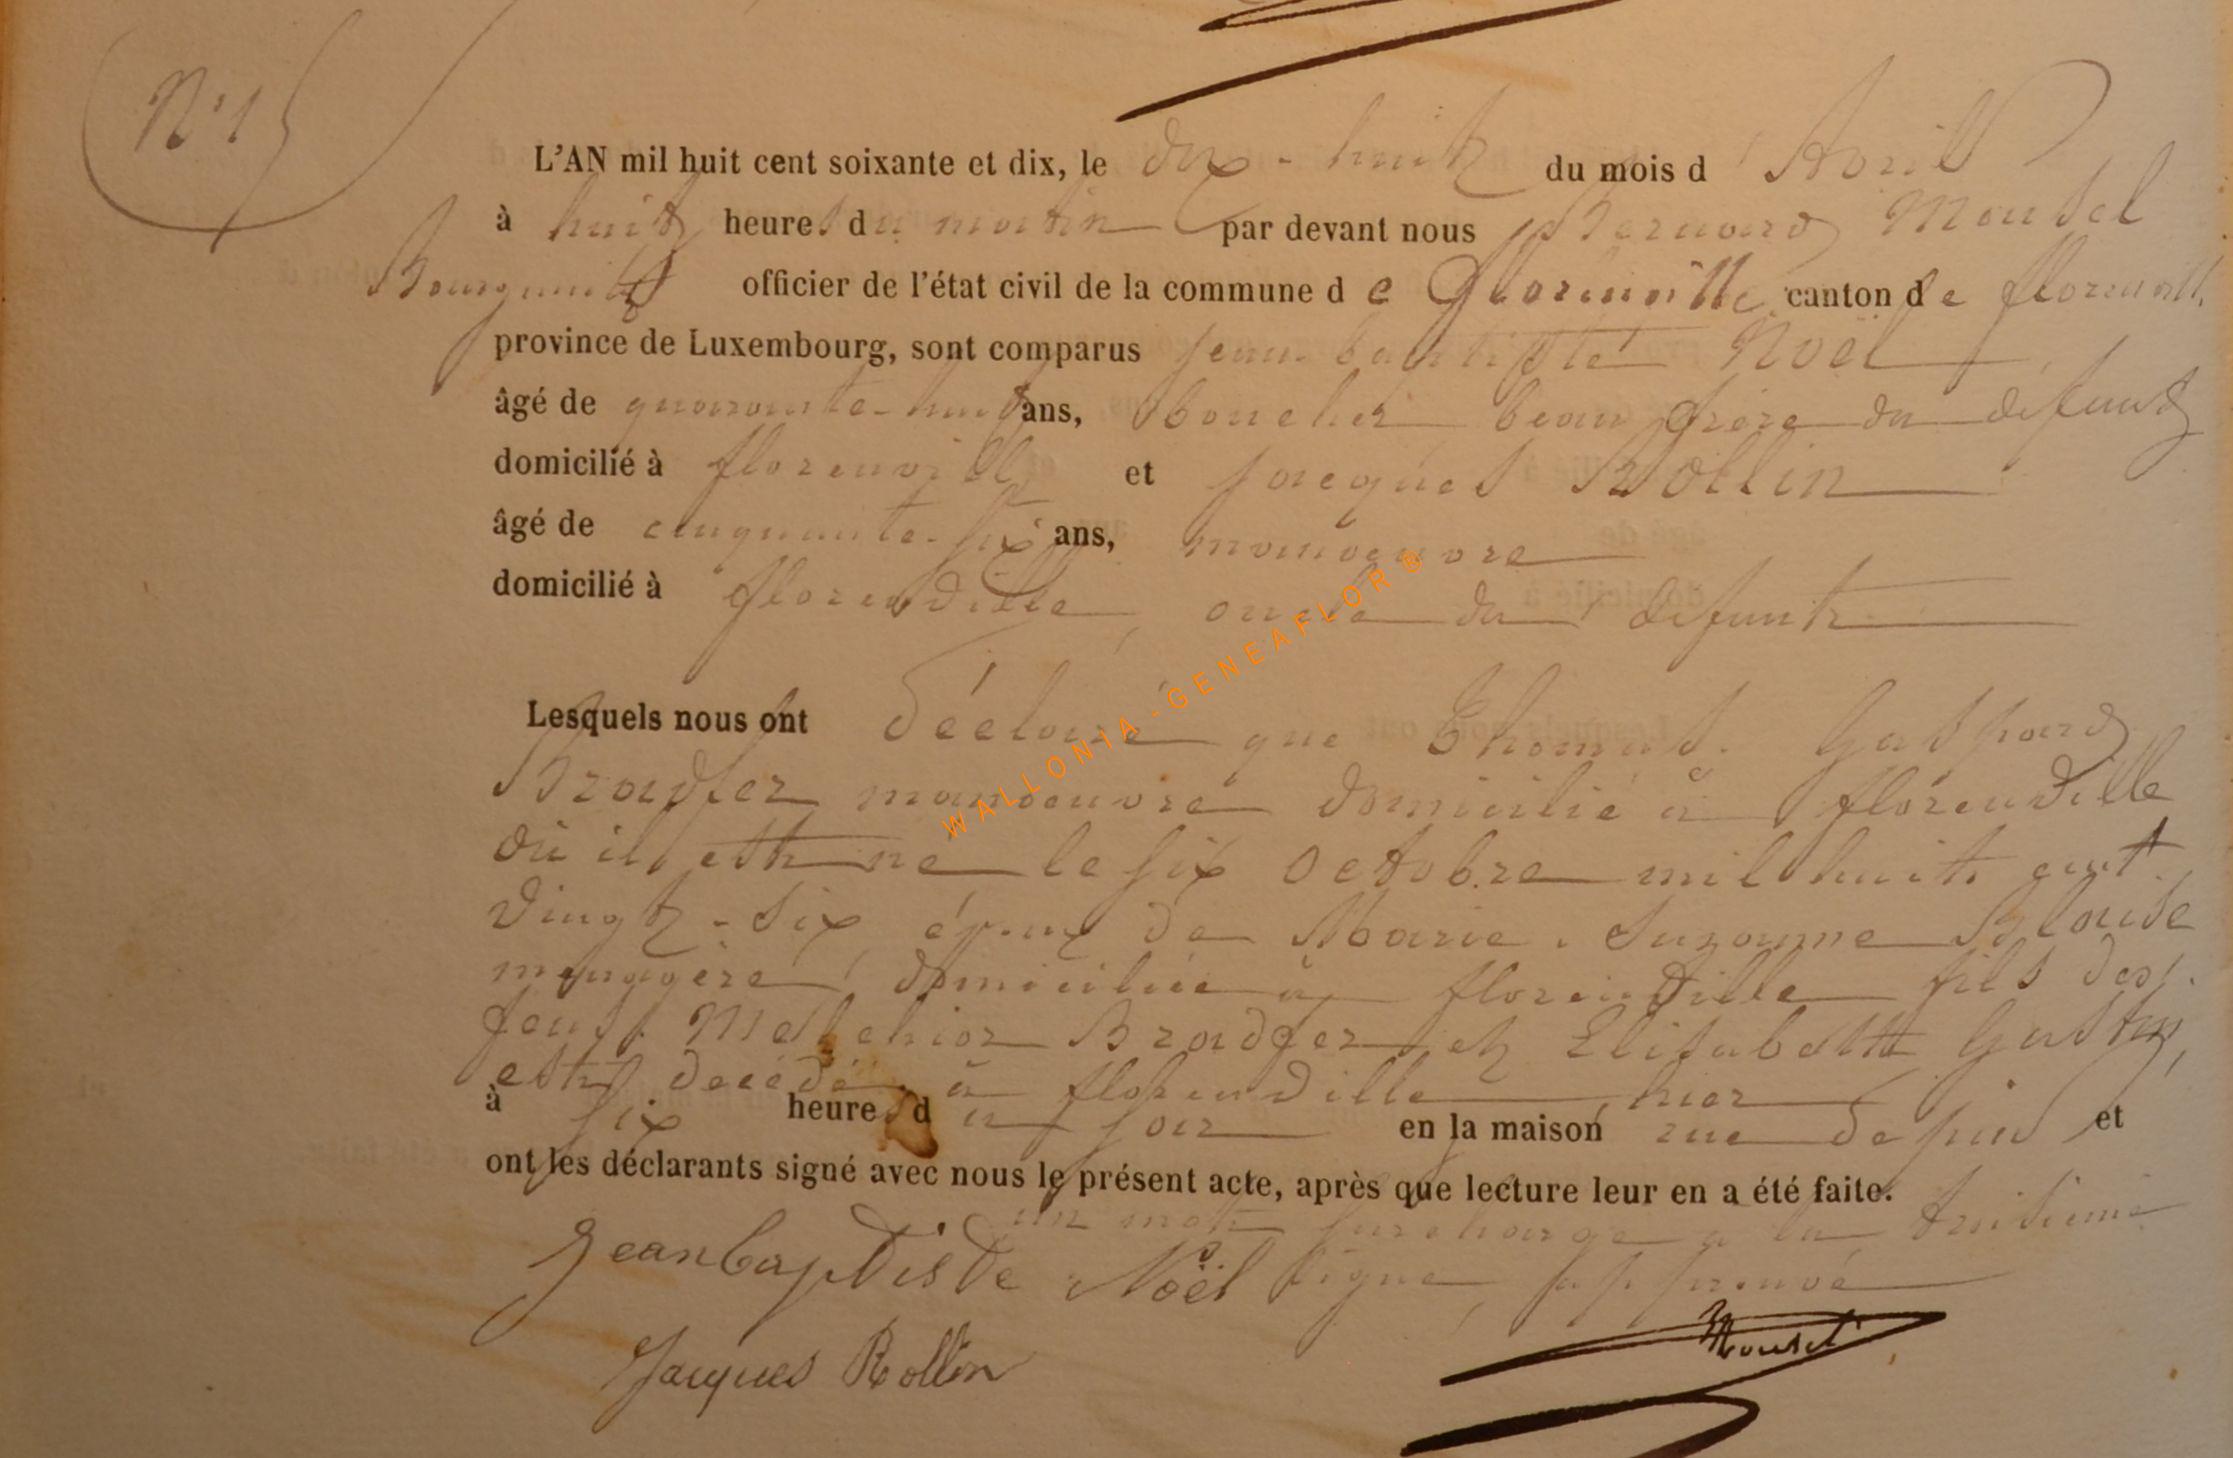 N° 15
L'AN mil huit cent soixante et dix, le dix-huit du mois d'Avril
à huit heures du matin par devant nous Bernard Mousel
Bourgmestre officier de l'état civil de la commune de Florenville canton de florenville
province de Luxembourg, sont comparus jean baptiste Noël
âgé de quarante-huit ans, boucher beau frère du défunt
domicilié à florenville et jacques Rollin
âgé de cinquante-six ans, manoeuvre
domicilié à florenville, oncle du défunt
Lesquels nous ont déclaré que Thomas Gaspard
Bradfer manoeuvre domicilié à florenville
où il est né le six octobre mil huit cent
vingt-six époux de Marie Suzanne Blaise
menagère, domiciliée à florenville fils des
feus Melchior Bradfer et Elisabeth
est décédé à florenville hier
à six heures du soir en la maison rue de et
ont les déclarants signé avec nous le présent acte, après que lecture leur en a été faite.
un mot surchargé a la troisieme
Jean baptiste Noël ligne approuvé
Mousel
Jacques Rollin
WALLONIA-GENEAFLOR®